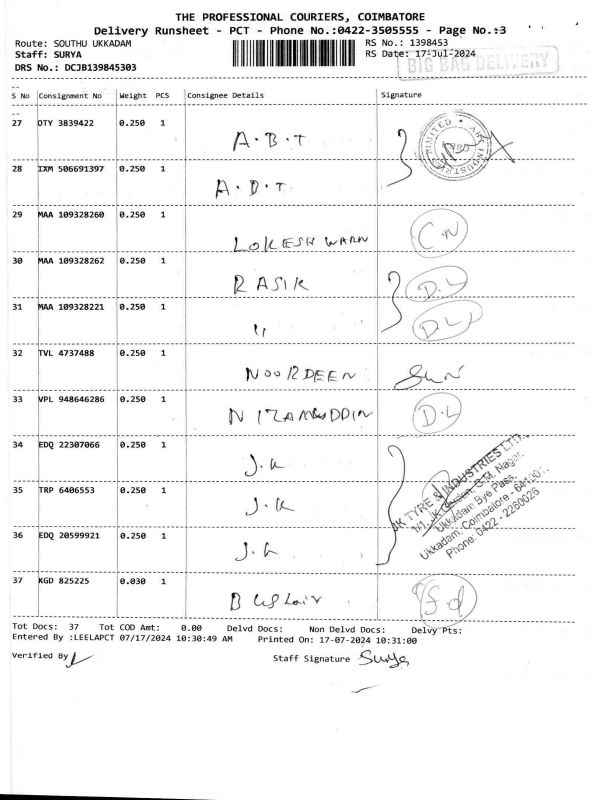 THE PROFESSIONAL COURIERS, COIMBATORE
Delivery Runsheet - PCT - Phone No.:0422-3505555 - Page No.:3
Route: SOUTHU UKKADAM RS No.: 1398453
Staff: SURYA RS Date: 17-Jul-2024
DRS No.: DCJB139845303 BIG BAG DELIVERY
S No Consignment No Weight PCS Consignee Details Signature
27 OTY 3839422 0.250 1 A.B.T
28 IXM 506691397 0.250 1 A.B.T
29 MAA 109328260 0.250 1 LOKESH WARN C.N
30 MAA 109328262 0.250 1 RASIK D.L
31 MAA 109328221 0.250 1 " D.L
32 TVL 4737488 0.250 1 NOORDEEN
33 VPL 948646286 0.250 1 NIZAMUDDIN D.L
34 EDQ 22307066 0.250 1 J.K
35 TRP 6406553 0.250 1 J.K
36 EDQ 20599921 0.250 1 J.K
JK TYRE & INDUSTRIES LTD.
Ukkadam Bye Pass,
Ukkadam, Coimbatore -
Phone: 0422 - 2260026
37 KGD 825225 0.030 1
Tot Docs: 37 Tot COD Amt: 0.00 Delvd Docs: Non Delvd Docs: Delvy Pts:
Entered By :LEELAPCT 07/17/2024 10:30:49 AM Printed On: 17-07-2024 10:31:00
Verified By Staff Signature Surya